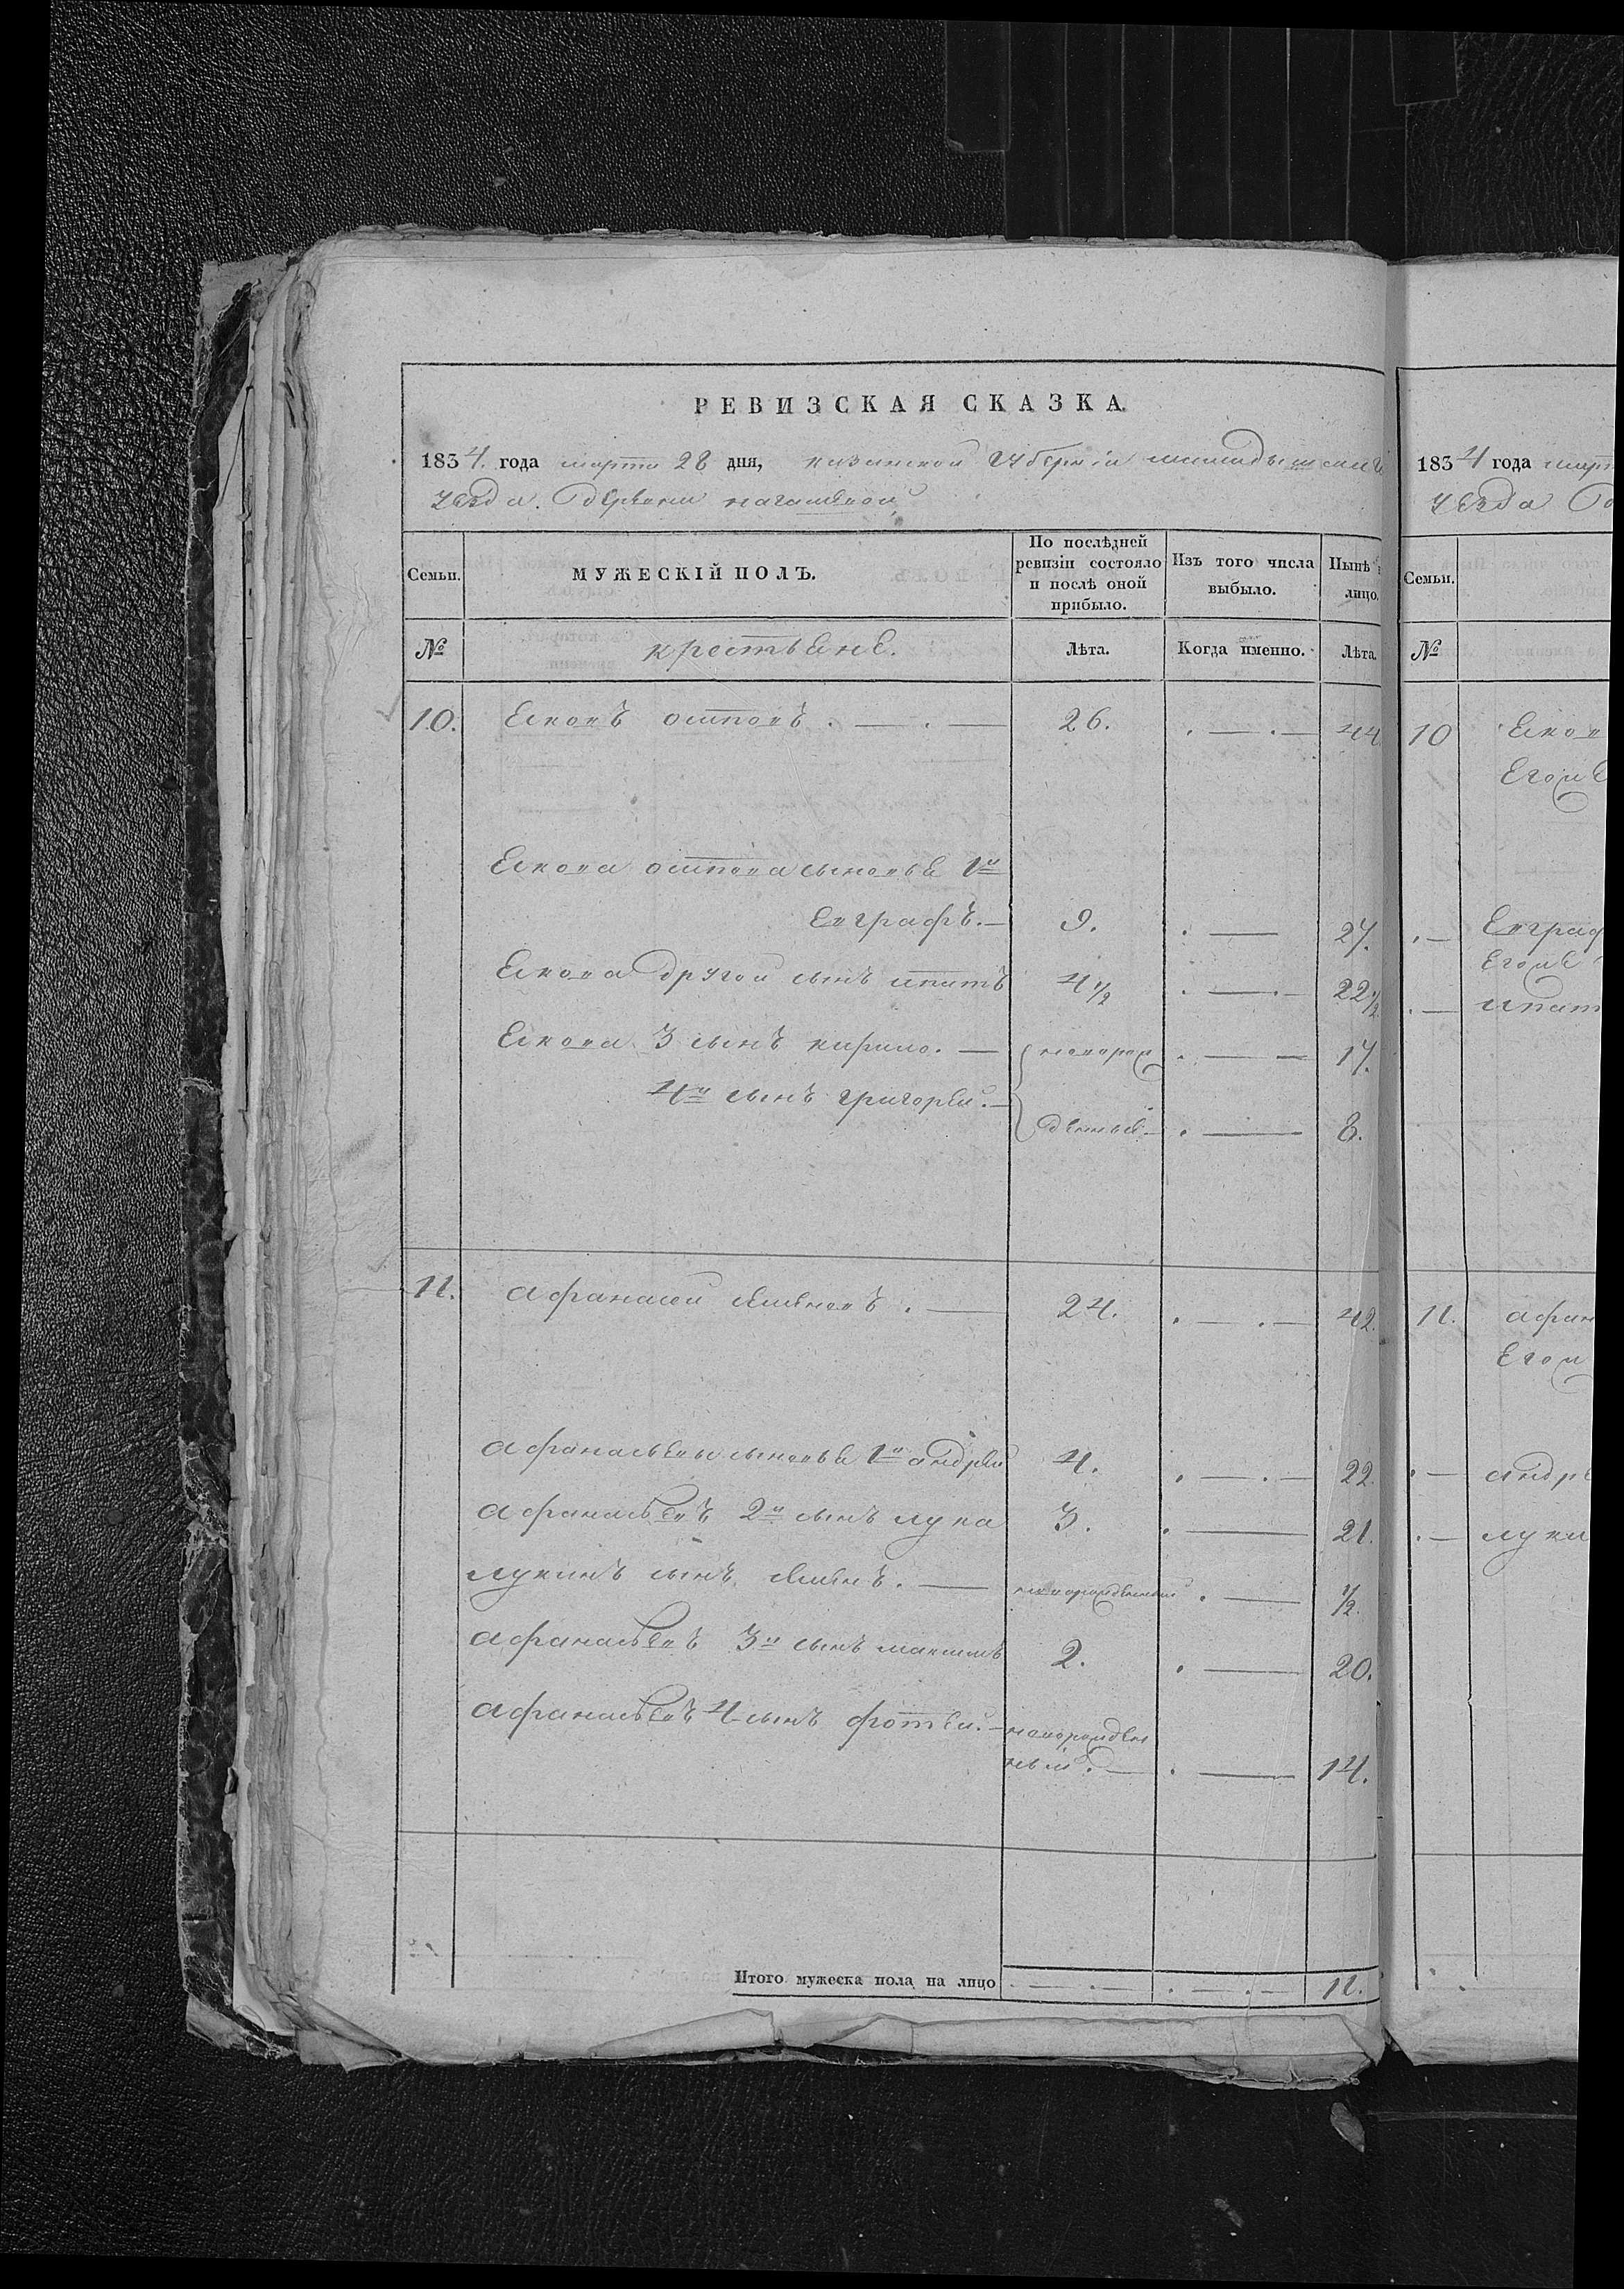 РЕВИЗСКАЯ СКАЗКА.
1834. года марта 28 дня, казанской губерніи мамадышскаго
уезда. деревни
Семьи. МУЖЕСКІЙ ПОЛЪ. По послѣдней ревизіи состояло и послѣ оной прибыло. Изъ того числа выбыло. Нынѣ лицо.
№ крестьяне. Лѣта. Когда именно. Лѣта.
10. 26. 44
сыновья 1й
евграфъ. 9. 27.
другой сынъ ипатъ 4 1/2 22 1/2
3 сынъ кирило. новорож 17.
4й сынъ григорей. денные 8.
11. афанасей 24. 42.
афанасьевы сыновья 1й андрей 4. 22.
афанасьевъ 2й сынъ лука 3. 21.
лукинъ сынъ новорожденный 1/2.
афанасьевъ 3й сынъ максимъ 2. 20.
афанасьевъ 4 сынъ фотей. новорожден
ный. 14.
Итого мужеска пола на лицо 11.
1834 года март
уезда
Семьи.
№
10
Евграф
ипат
11. афан
андре
лука